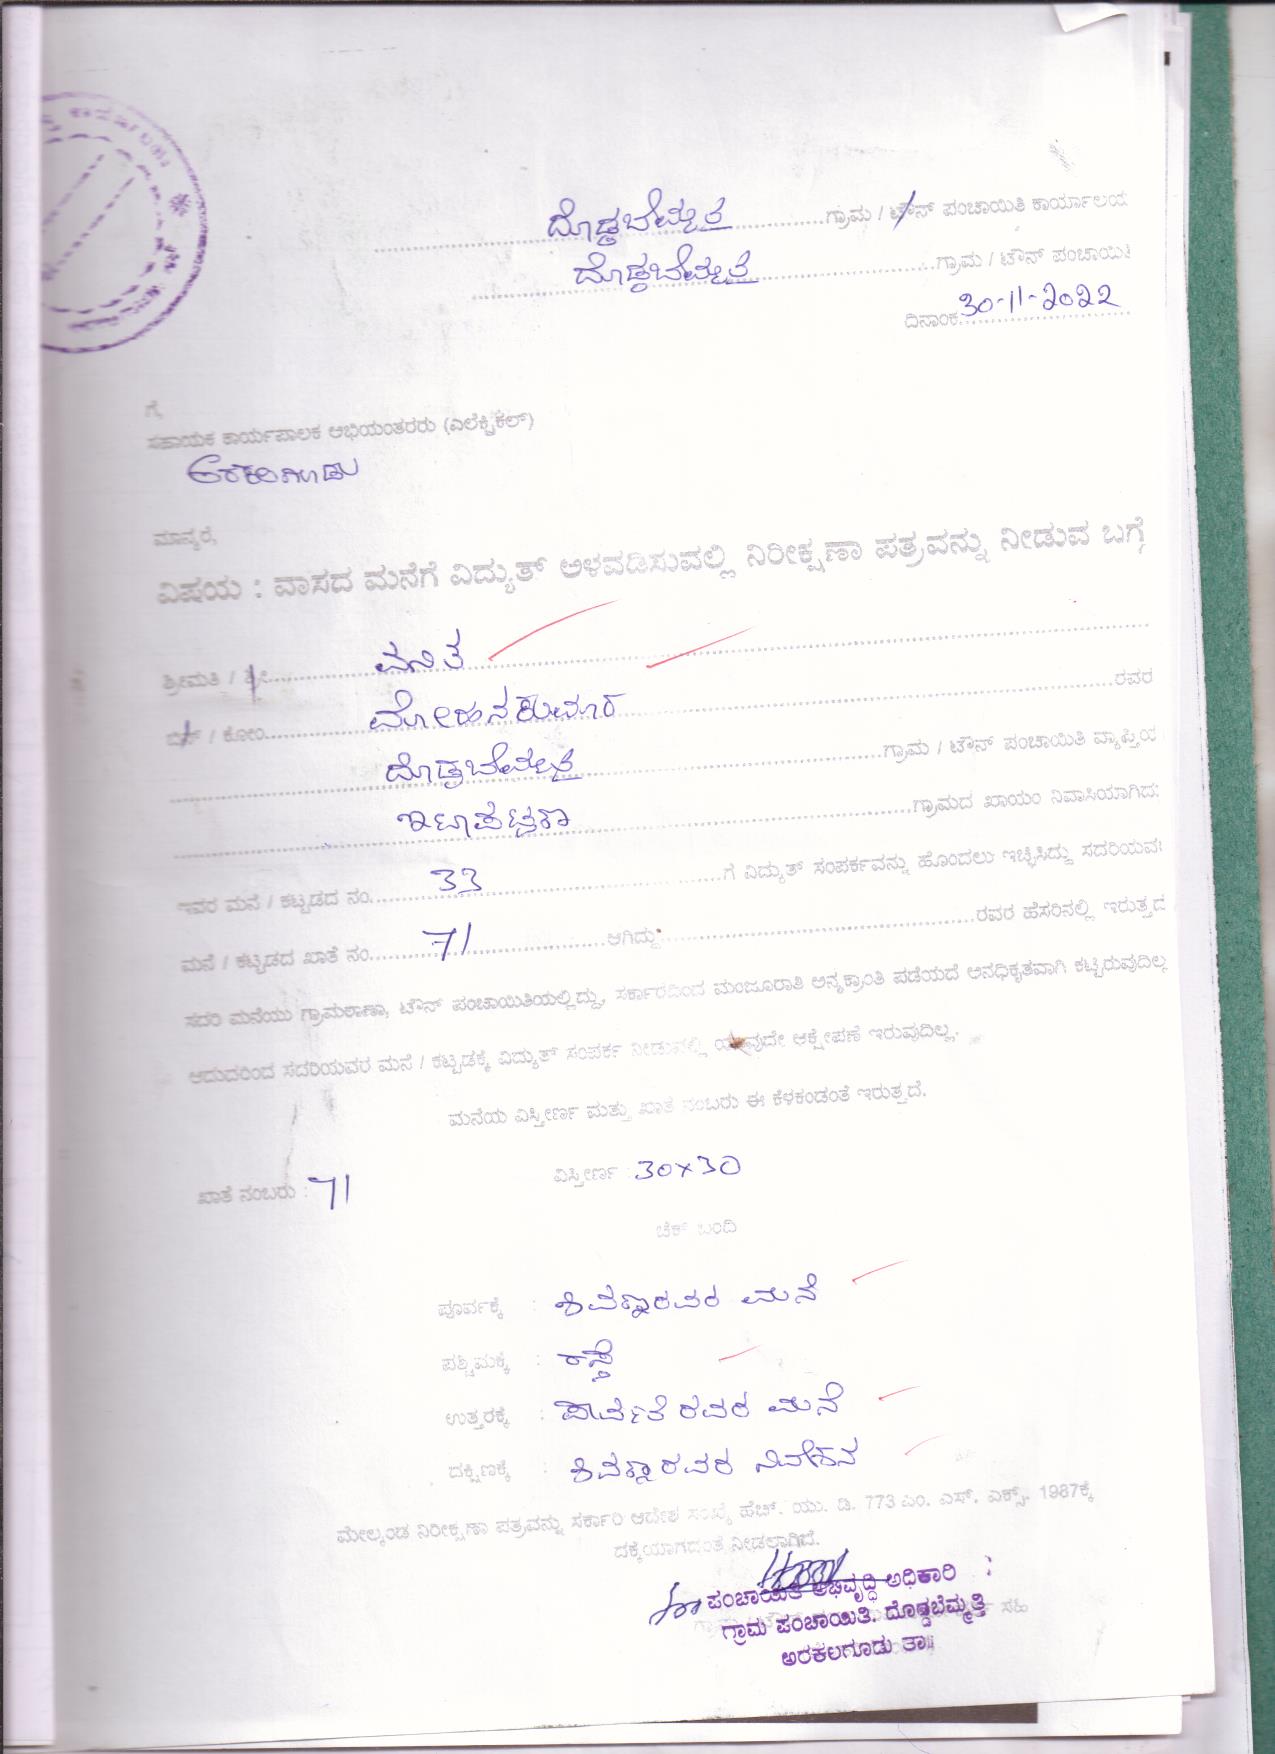 ಕಾರ್ಯಾಲಯ
ದೊಡ್ಡಬೆಮ್ಮತ್ತಿ ಗ್ರಾಮ / ಟೌನ್ ಪಂಚಾಯಿತಿ ಕಾರ್ಯಾಲಯ
ದೊಡ್ಡಬೆಮ್ಮತ್ತಿ ಗ್ರಾಮ / ಟೌನ್ ಪಂಚಾಯಿತಿ
ದಿನಾಂಕ 30-11-2022
ಗೆ,
ಸಹಾಯಕ ಕಾರ್ಯಪಾಲಕ ಅಭಿಯಂತರರು (ಎಲೆಕ್ಟ್ರಿಕಲ್)
ಅರಕಲಗೂಡು
ಮಾನ್ಯರೆ,
ವಿಷಯ : ವಾಸದ ಮನೆಗೆ ವಿದ್ಯುತ್ ಅಳವಡಿಸುವಲ್ಲಿ ನಿರೀಕ್ಷಣಾ ಪತ್ರವನ್ನು ನೀಡುವ ಬಗ್ಗೆ
ಶ್ರೀಮತಿ / ಶ್ರೀ ವನಿತ
ಬಿನ್ / ಕೋಂ ಮೋಹನಕುಮಾರ ರವರ
ದೊಡ್ಡಬೆಮ್ಮತ್ತಿ ಗ್ರಾಮ / ಟೌನ್ ಪಂಚಾಯಿತಿ ವ್ಯಾಪ್ತಿಯ
ಗ್ರಾಮದ ಖಾಯಂ ನಿವಾಸಿಯಾಗಿದ್ದು
ಇವರ ಮನೆ / ಕಟ್ಟಡದ ನಂ. 33 ಗೆ ವಿದ್ಯುತ್ ಸಂಪರ್ಕವನ್ನು ಹೊಂದಲು ಇಚ್ಛಿಸಿದ್ದು ಸದರಿಯವರ
ಮನೆ / ಕಟ್ಟಡದ ಖಾತೆ ನಂ. 71 ಆಗಿದ್ದು ರವರ ಹೆಸರಿನಲ್ಲಿ ಇರುತ್ತದೆ
ಸದರಿ ಮನೆಯು ಗ್ರಾಮಠಾಣಾ, ಟೌನ್ ಪಂಚಾಯಿತಿಯಲ್ಲಿದ್ದು, ಸರ್ಕಾರದಿಂದ ಮಂಜೂರಾತಿ ಅನ್ಯಕ್ರಾಂತಿ ಪಡೆಯದೆ ಅನಧಿಕೃತವಾಗಿ ಕಟ್ಟಿರುವುದಿಲ್ಲ
ಆದುದರಿಂದ ಸದರಿಯವರ ಮನೆ / ಕಟ್ಟಡಕ್ಕೆ ವಿದ್ಯುತ್ ಸಂಪರ್ಕ ನೀಡುವಲ್ಲಿ ಯಾವುದೇ ಆಕ್ಷೇಪಣೆ ಇರುವುದಿಲ್ಲ.
ಮನೆಯ ವಿಸ್ತೀರ್ಣ ಮತ್ತು ಖಾತೆ ನಂಬರು ಈ ಕೆಳಕಂಡಂತೆ ಇರುತ್ತದೆ.
ಖಾತೆ ನಂಬರು : 71 ವಿಸ್ತೀರ್ಣ : 30x30
ಚೆಕ್ ಬಂದಿ
ಪೂರ್ವಕ್ಕೆ : ಶಿವಣ್ಣರವರ ಮನೆ
ಪಶ್ಚಿಮಕ್ಕೆ : ರಸ್ತೆ
ಉತ್ತರಕ್ಕೆ : ಪಾರ್ವತಿ ರವರ ಮನೆ
ದಕ್ಷಿಣಕ್ಕೆ : ಶಿವಣ್ಣರವರ ನಿವೇಶನ
ಮೇಲ್ಕಂಡ ನಿರೀಕ್ಷಣಾ ಪತ್ರವನ್ನು ಸರ್ಕಾರಿ ಆದೇಶ ಸಂಖ್ಯೆ ಹೆಚ್. ಯು. ಡಿ. 773 ಎಂ. ಎಸ್. ಎಕ್ಸ್. 1987ಕ್ಕೆ
ದಕ್ಕೆಯಾಗದಂತೆ ನೀಡಲಾಗಿದೆ.
ಪಂಚಾಯಿತಿ ಅಭಿವೃದ್ಧಿ ಅಧಿಕಾರಿ
ಗ್ರಾಮ ಪಂಚಾಯಿತಿ. ದೊಡ್ಡಬೆಮ್ಮತ್ತಿ
ಅರಕಲಗೂಡು ತಾ||